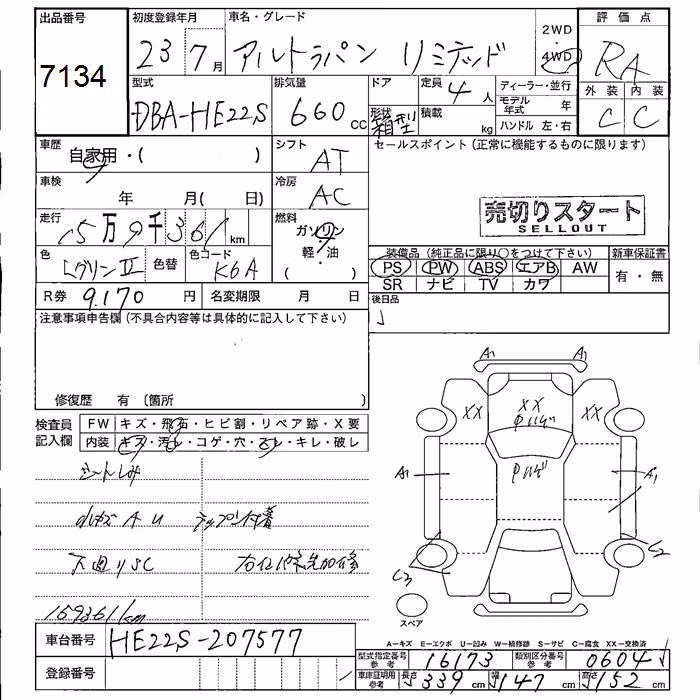 出品番号
7134
初度登録年月
23 7月
車名・グレード
アルトラパン リミテッド
2WD
4WD
評価点
RA
外装 内装
C C
型式
DBA-HE22S
排気量
660 cc
ドア
形状
箱型
定員
4人
積載
kg
ディーラー・並行
モデル年式 年
ハンドル 左・右
車歴
自家用・( )
シフト
AT
車検
年 月( 日)
冷房
AC
走行
15万9千361km
燃料
ガソリン
軽・油
( )
色
Lグリーン II
色替
色コード
K6A
R券 9,170 円
名変期限 月 日
セールスポイント (正常に機能するものに限ります)
売切りスタート
SELLOUT
装備品 (純正品に限り○をつけて下さい)
PS PW ABS エアB AW
SR ナビ TV カワ
新車保証書
有・無
後日品
注意事項申告欄 (不具合内容等は具体的に記入して下さい)
修復歴 有 〔箇所
検査員
記入欄
FW キズ・飛石・ヒビ割・リペア跡・X要
内装 キズ・汚レ・コゲ・穴・スレ・キレ・破レ
シートしみ
小キズ A U
下回りSC
159361km
A1 A1
XX XX XX
A1 A1
C3 C2
スペア
A-キズ E-エクボ U-凹み W-補修跡 S-サビ C-腐食 XX-交換済
車台番号 HE22S-207577
登録番号
型式指定番号
参考
16173
類別区分番号
参考
0604
車庫証明用
参考
長さ 339 cm 幅 147 cm 高さ 152 cm